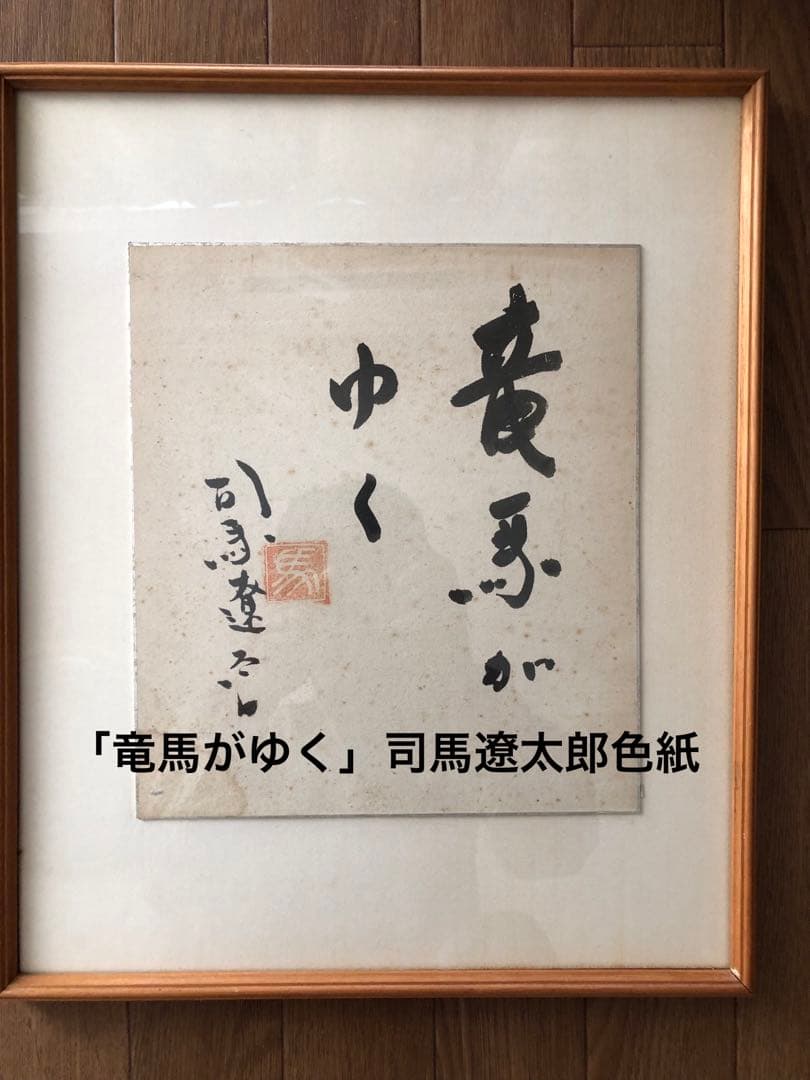 竜馬が
ゆく
司馬遼太郎
馬
「竜馬がゆく」司馬遼太郎色紙